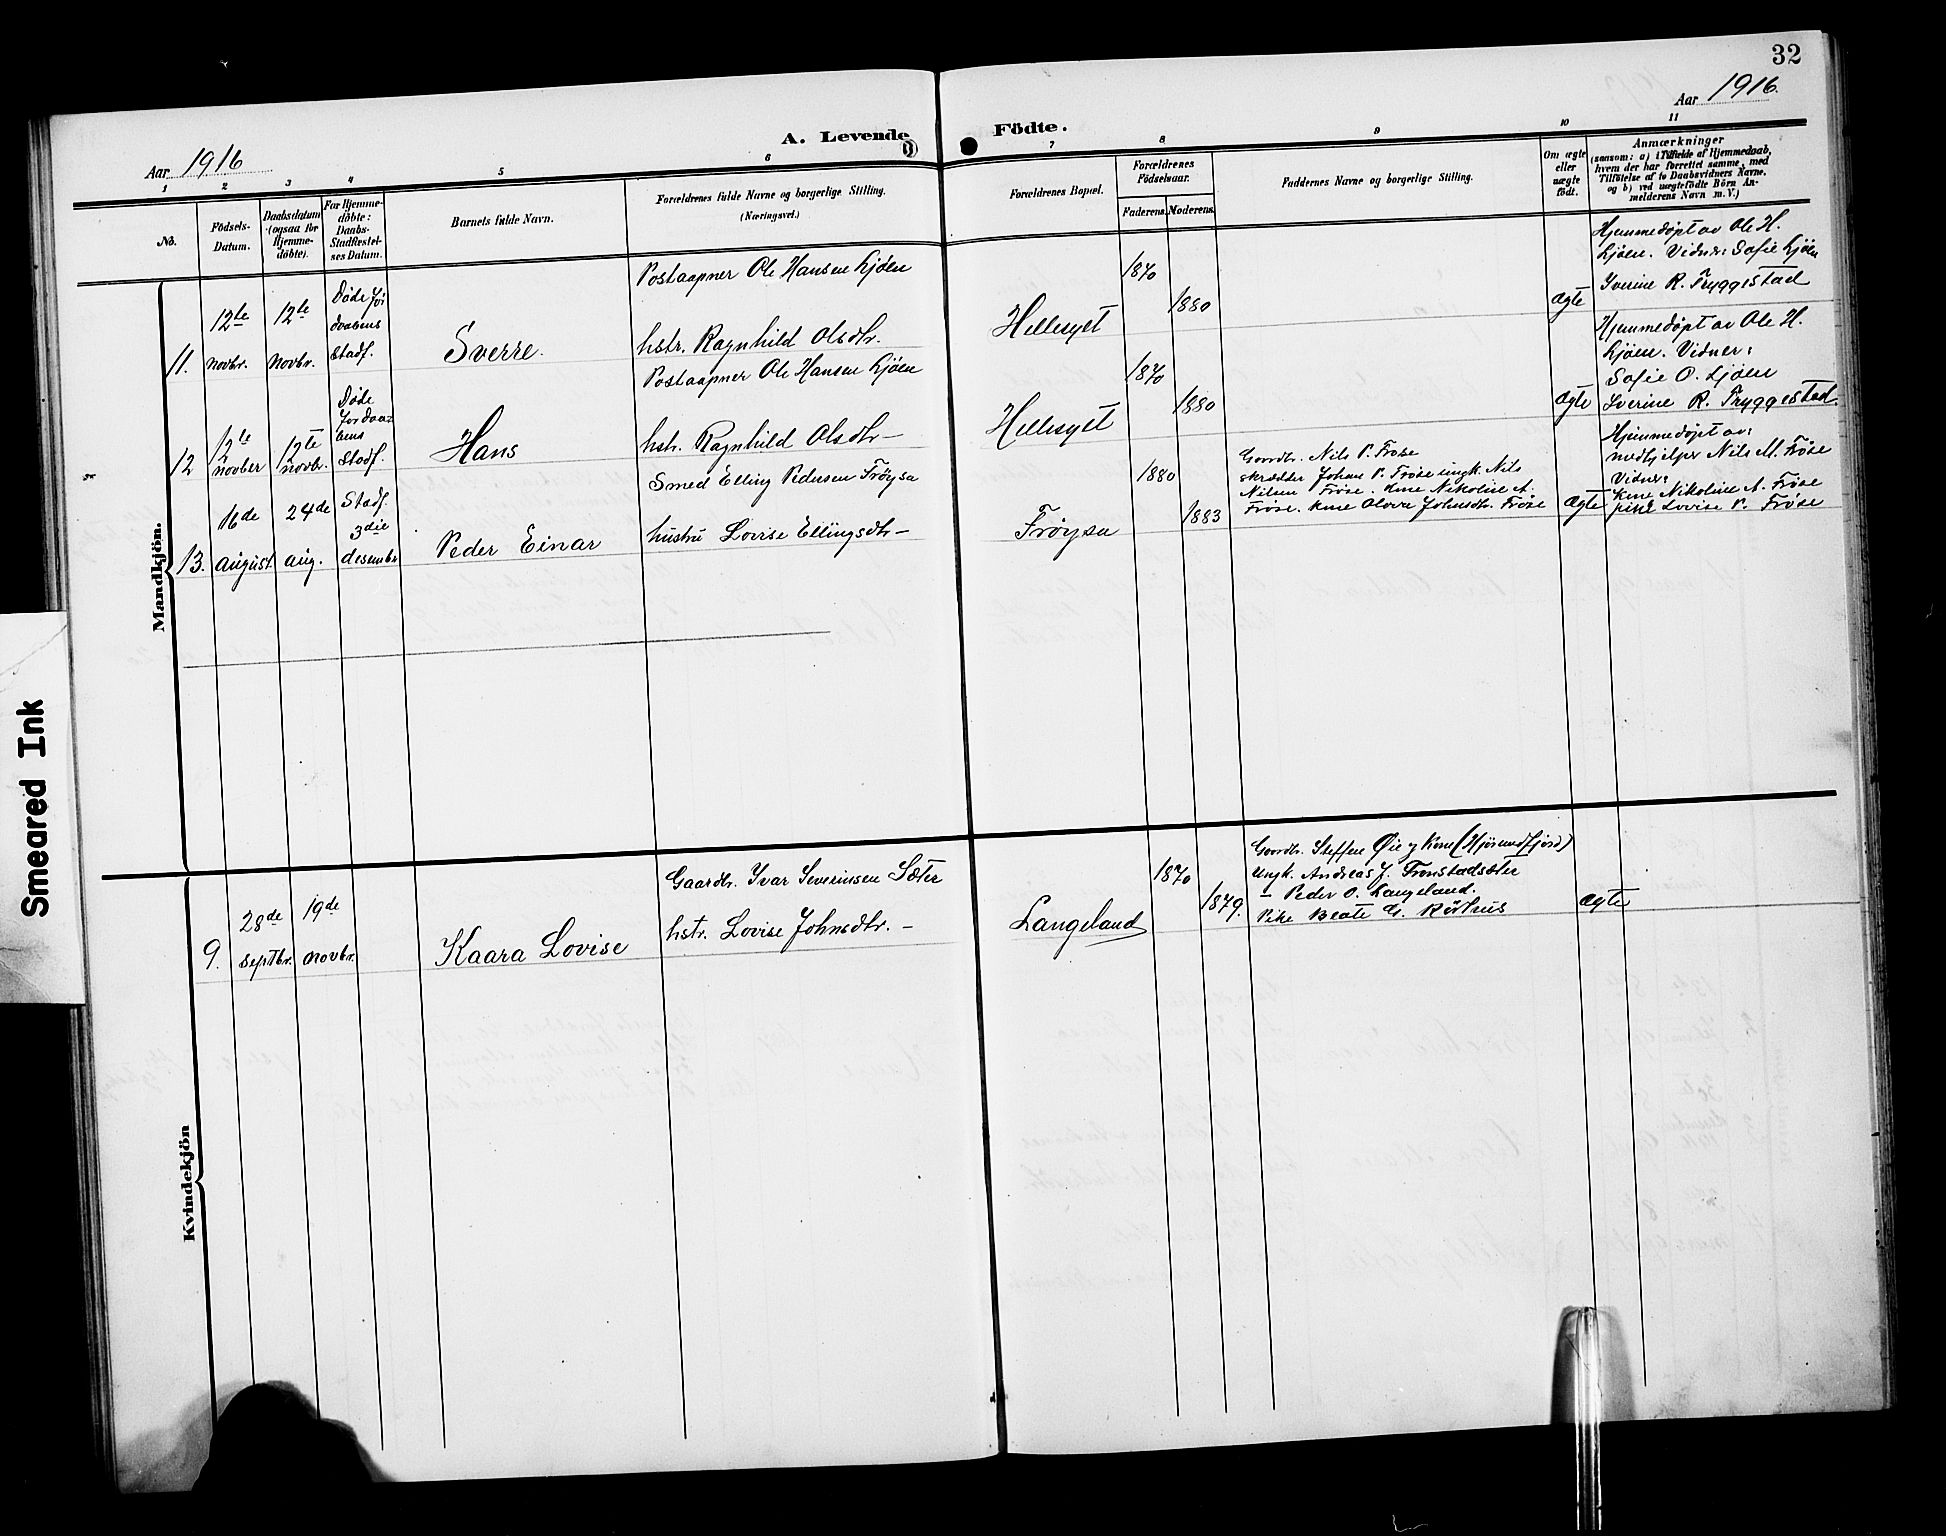 32
Aar 1916.
A. Levende Födte.
Aar 1916
1 2 3 4 5 6 7 8 9 10 11
No.
Födsels-
Datum.
Daabsdatum
(ogsaa for
Hjemme-
døbte).
For Hjemme-
døbte:
Daabs-
Stadfæstel-
ses Datum.
Barnets fulde Navn.
Forældrenes fulde Navne og borgerlige Stilling.
(Næringsvei.)
Forældrenes Bopæl.
Forældrenes
Födselsaar.
Faderens.
Moderens.
Faddernes Navne og borgerlige Stilling.
Om ægte
eller
uægte
født.
Anmærkninger
(saasom: a) i Tilfælde af Hjemmedaab,
hvem der har forrettet samme, med
Tilföielse af to Daabsvidners Navne,
og b) ved uægtefödte Börn An-
melderens Navn m.V.)
Mandkjön.
11. 12te novbr. 12te novbr.
Døde for
daabens
stadf.
Sverre.
Postaapner Ole Hansen Ljøen
hstr. Ragnhild Olsdtr.
Hellesylt
1870
1880
ægte
Hjemmedøpt av Ole H.
Ljøen. Vidner: Sofie Ljøen
Iverine R. Tryggestad
12 12te novber 12te novbr.
Døde
for daa-
bens
stadf.
Hans
Postaapner Ole Hansen Ljøen
hstr. Ragnhild Olsdtr -
Hellesylt
1870
1880
ægte
Hjemmedøpt av Ole H.
Ljøen. Vidner:
Sofie O. Ljøen
Iverine R. Tryggestad.
13. 16de august 24de aug.
Stadf.
3die
desembr
Peder Einar
Smed Elling Pedersen Frøysa
hustru Lovise Ellingsdtr -
Frøysa
1880
1883
Gaardbr. Nils P. Frøse
skrædder Johan P. Frøse ungk. Nils
Nilsen Frøse. Kone Nikoline A.
Frøse. Kone Olova Johnsdtr. Frøse
ægte
Hjemmedøpt av:
nødhjelper Nils M. Frøse
Vidner:
Kone Nikoline A. Frøse
pike Lovise P. Frøse
Kvindekjön
9. 28de septbr. 19de novbr.
Kaara Lovise
Gaardbr. Ivar Severinsen Sæter
hstr. Lovise Johnsdtr. -
Langeland
1870
1879.
Gaardbr. Steffen Øie og Kone (Hjørundfjord)
Ungk. Andreas J. Tronstadsæter
- Peder O. Langeland.
Pike Beate G. Rørhus
ægte
Smeared Ink